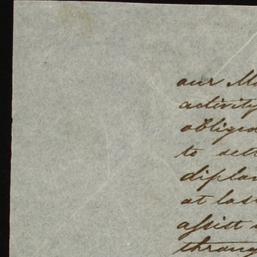 our M
activity
oblige
to set
diplo
at las
assist
throug